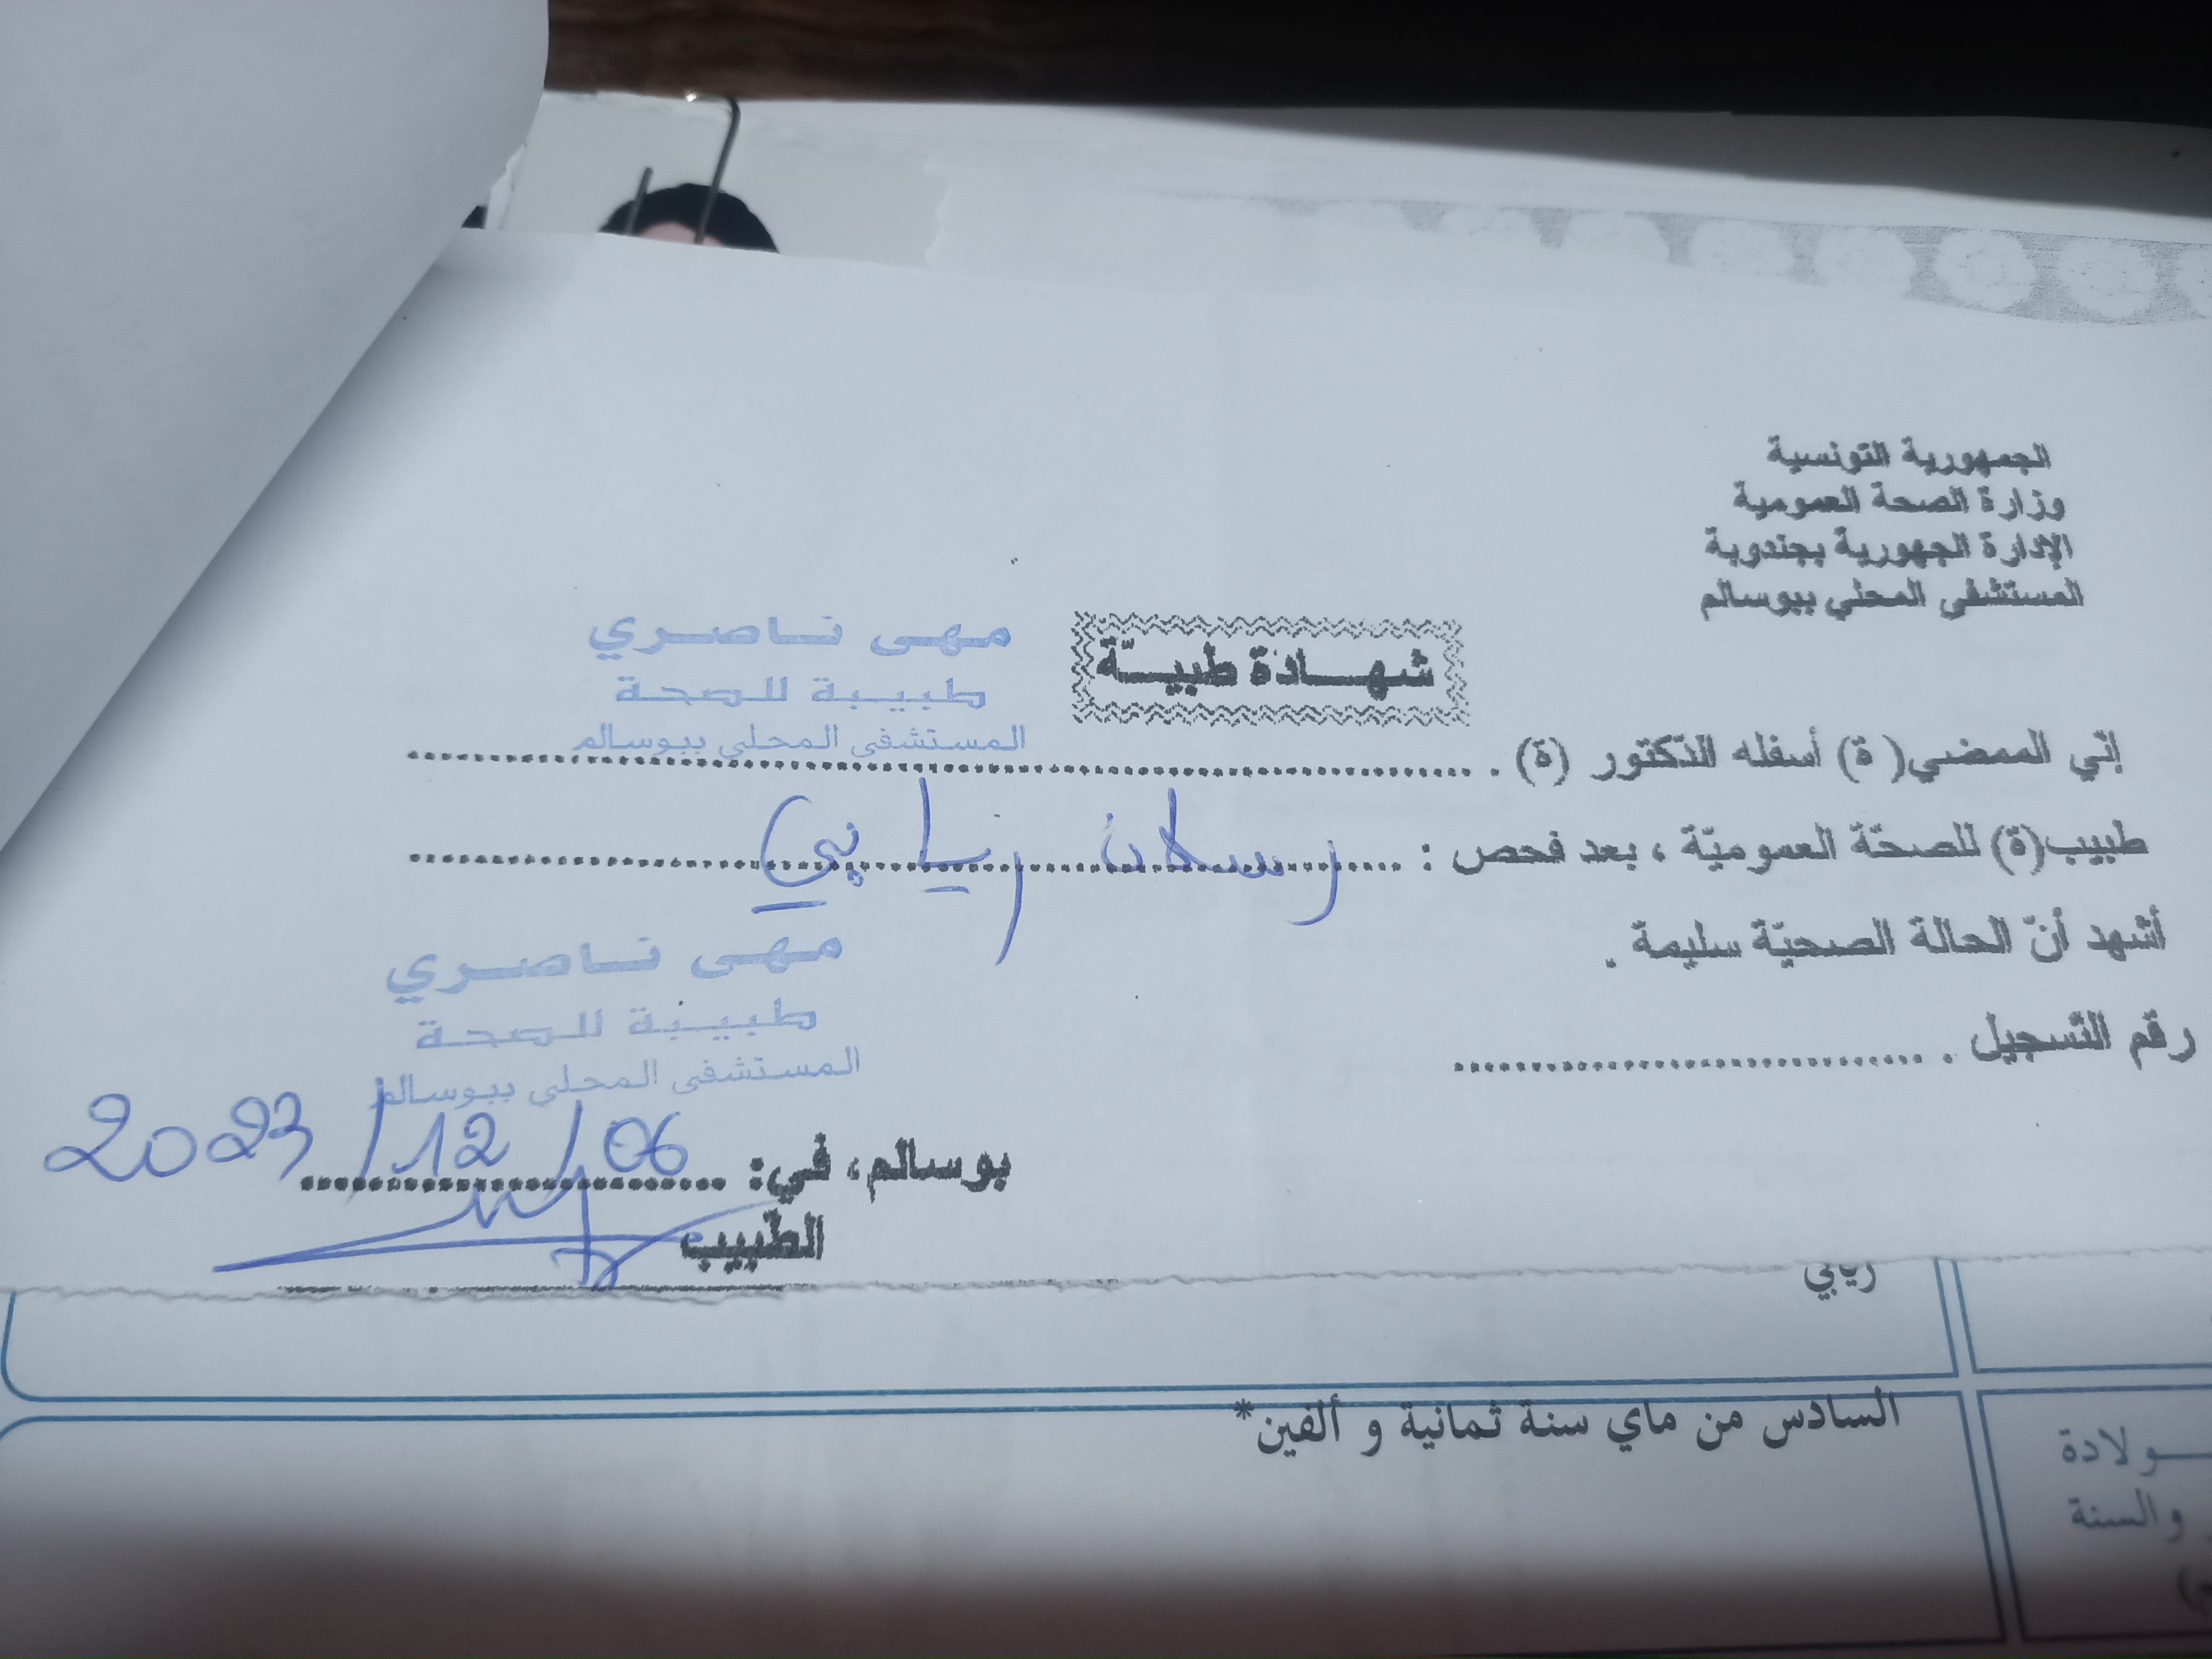 الجمهورية التونسية
وزارة الصحة العمومية
الإدارة الجهورية بجندوبة
المستشفى المحلي ببوسالم
شهـــادة طبيـــّة
مهى ناصري
طبيبة للصحة
المستشفى المحلي ببوسالم
إنّي الممضي( ة) أسفله الدّكتور (ة) .
طبيب(ة) للصحّة العموميّة ، بعد فحص : رسلان ريابي
أشهد أنّ الحالة الصحيّة سليمة .
رقم التّسجيل .
مهى ناصري
طبيبة للصحة
المستشفى المحلي ببوسالم
بوسالم، في: 06 / 12 / 2023
الطّبيب
ريابي
السادس من ماي سنة ثمانية و ألفين*
ـولادة
والسنة